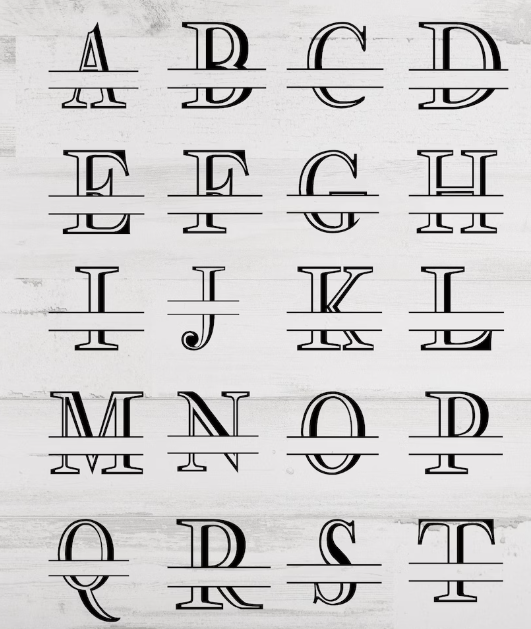 A B C D
E F G H
I J K L
M N O P
Q R S T